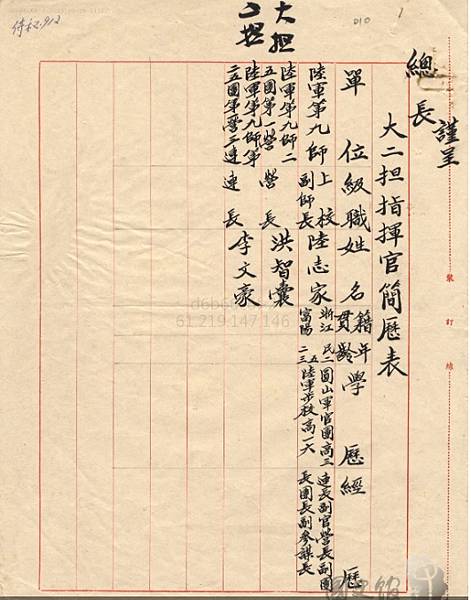 總長
謹呈
大二担指揮官簡歷表
單位級職姓名籍貫年齡學歷經歷
陸軍第九師上校副師長陸志家浙江富陽民二五二三圓山軍官團高三陸軍步校高一六連長副官營長副團長團長副參謀長
大担
陸軍第九師二五團第一營營長洪智囊
二担
陸軍第九師第二五團第一營二連連長李文豪
裝訂線
010
1
61.219.147.146